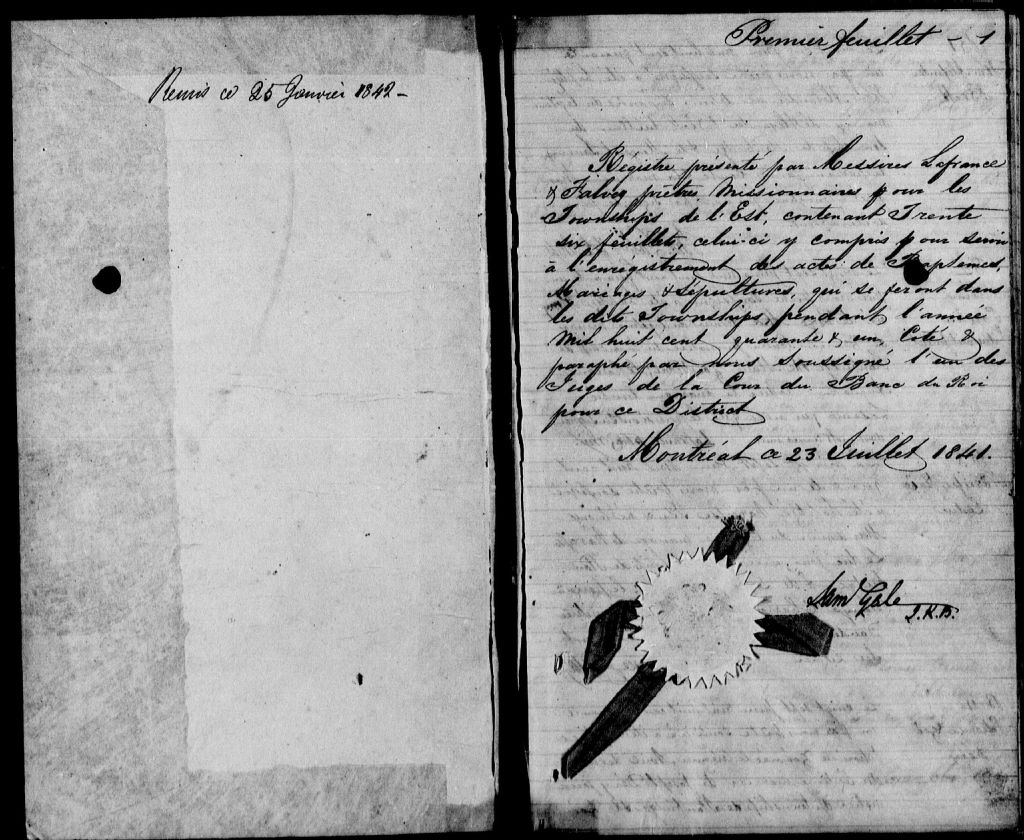 Remis ce 25 Janvier 1842 -
Premier feuillet - 1
Régistre présenté par Messires Lafrance
& Falvey prêtres Missionnaires pour les
Townships de l'Est, contenant Trente
six feuillets, celui-ci y compris pour servir
à l'enrégistrement des actes de Baptemes,
Mariages & Sépultures, qui se feront dans
les dits Townships, pendant l'année
Mil huit cent quarante & un, Coté &
paraphé par nous Soussigné l'un des
Juges de la Cour du Banc du Roi
pour ce District
Montréal ce 23 Juillet 1841.
Saml Gale
J.K.B.